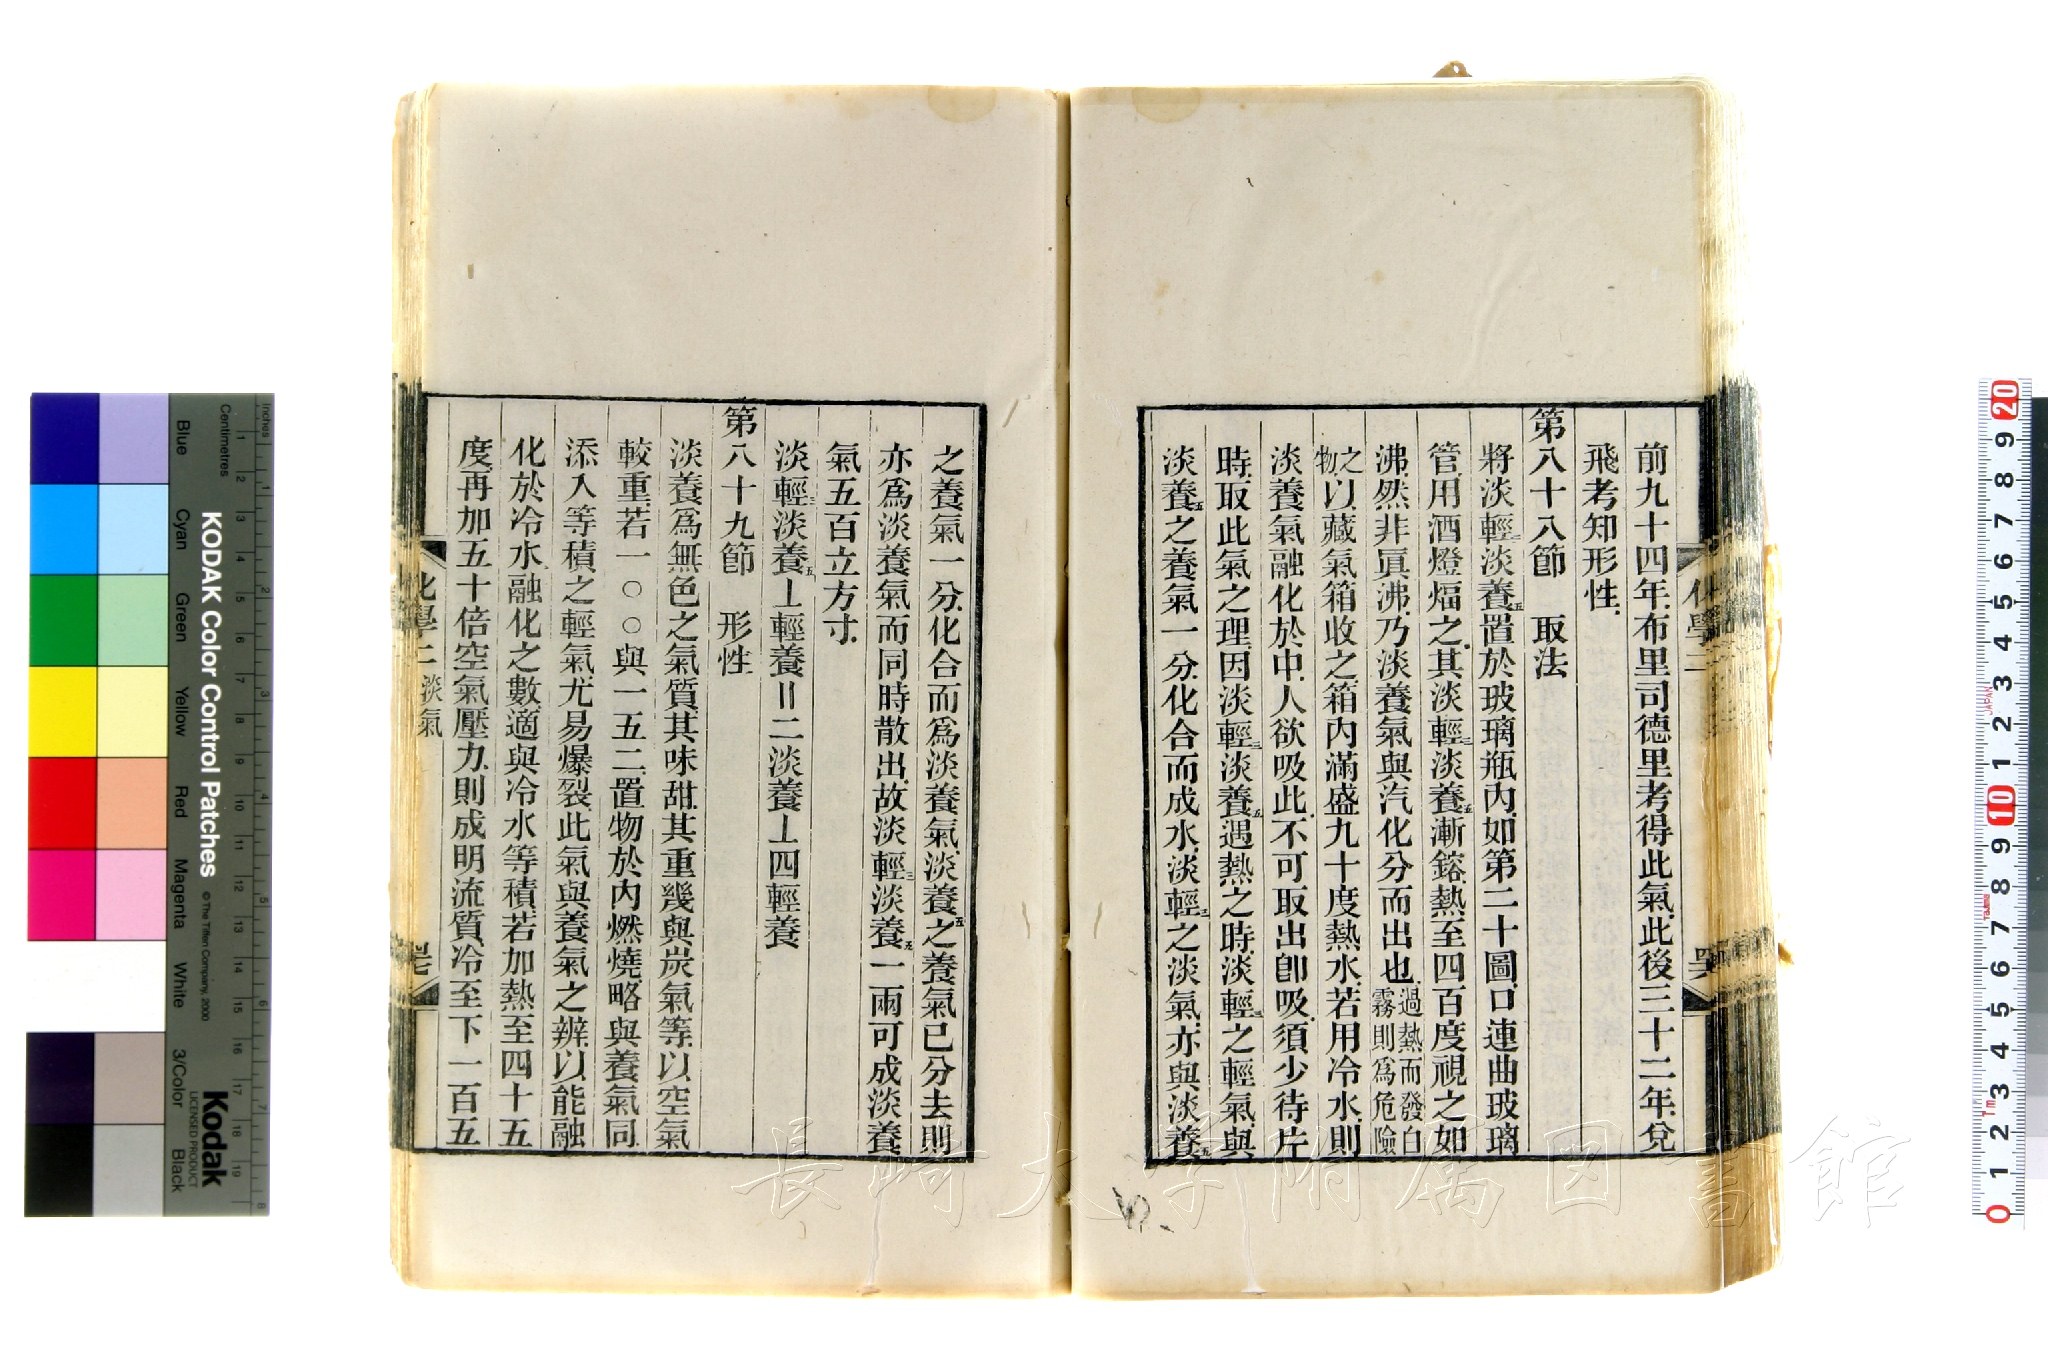 前九十四年、布里司德里考得此氣、此後三十二年、兌
飛考知形性、
第八十八節　取法
將淡輕三淡養五置於玻璃瓶內、如第二十圖、口連曲玻璃
管、用酒燈煏之、其淡輕三淡養五漸鎔、熱至四百度、視之如
沸、然非眞沸、乃淡養氣與汽化分而出也、過熱而發白霧則爲危險
之物、以藏氣箱收之、箱內滿盛九十度熱水、若用冷水、則
淡養氣融化於中、人欲吸此、不可取出卽吸、須少待片
時、取此氣之理、因淡輕三淡養五遇熱之時、淡輕三之輕氣、與
淡養五之養氣一分、化合而成水、淡輕三之淡氣、亦與淡養五
之養氣一分、化合而爲淡養氣、淡養五之養氣已分去、則
亦爲淡養氣而同時散出、故淡輕三淡養五一兩、可成淡養
氣五百立方寸、
淡輕三淡養五⊥輕養＝二淡養⊥四輕養
第八十九節　形性
淡養爲無色之氣質、其味甜、其重幾與炭氣等、以空氣
較重、若一〇〇與一五二、置物於內燃燒、略與養氣同、
添入等積之輕氣、尤易爆裂、此氣與養氣之辨、以能融
化於冷水、融化之數、適與冷水等積、若加熱至四十五
度、再加五十倍空氣壓力、則成明流質、冷至下一百五
化學二
化學二　淡氣
KODAK Color Control Patches
© The Tiffen Company, 2000
Kodak
LICENSED PRODUCT
Inches
Centimetres
Blue
Cyan
Green
Yellow
Red
Magenta
White
3/Color
Black
長崎大学附属図書館